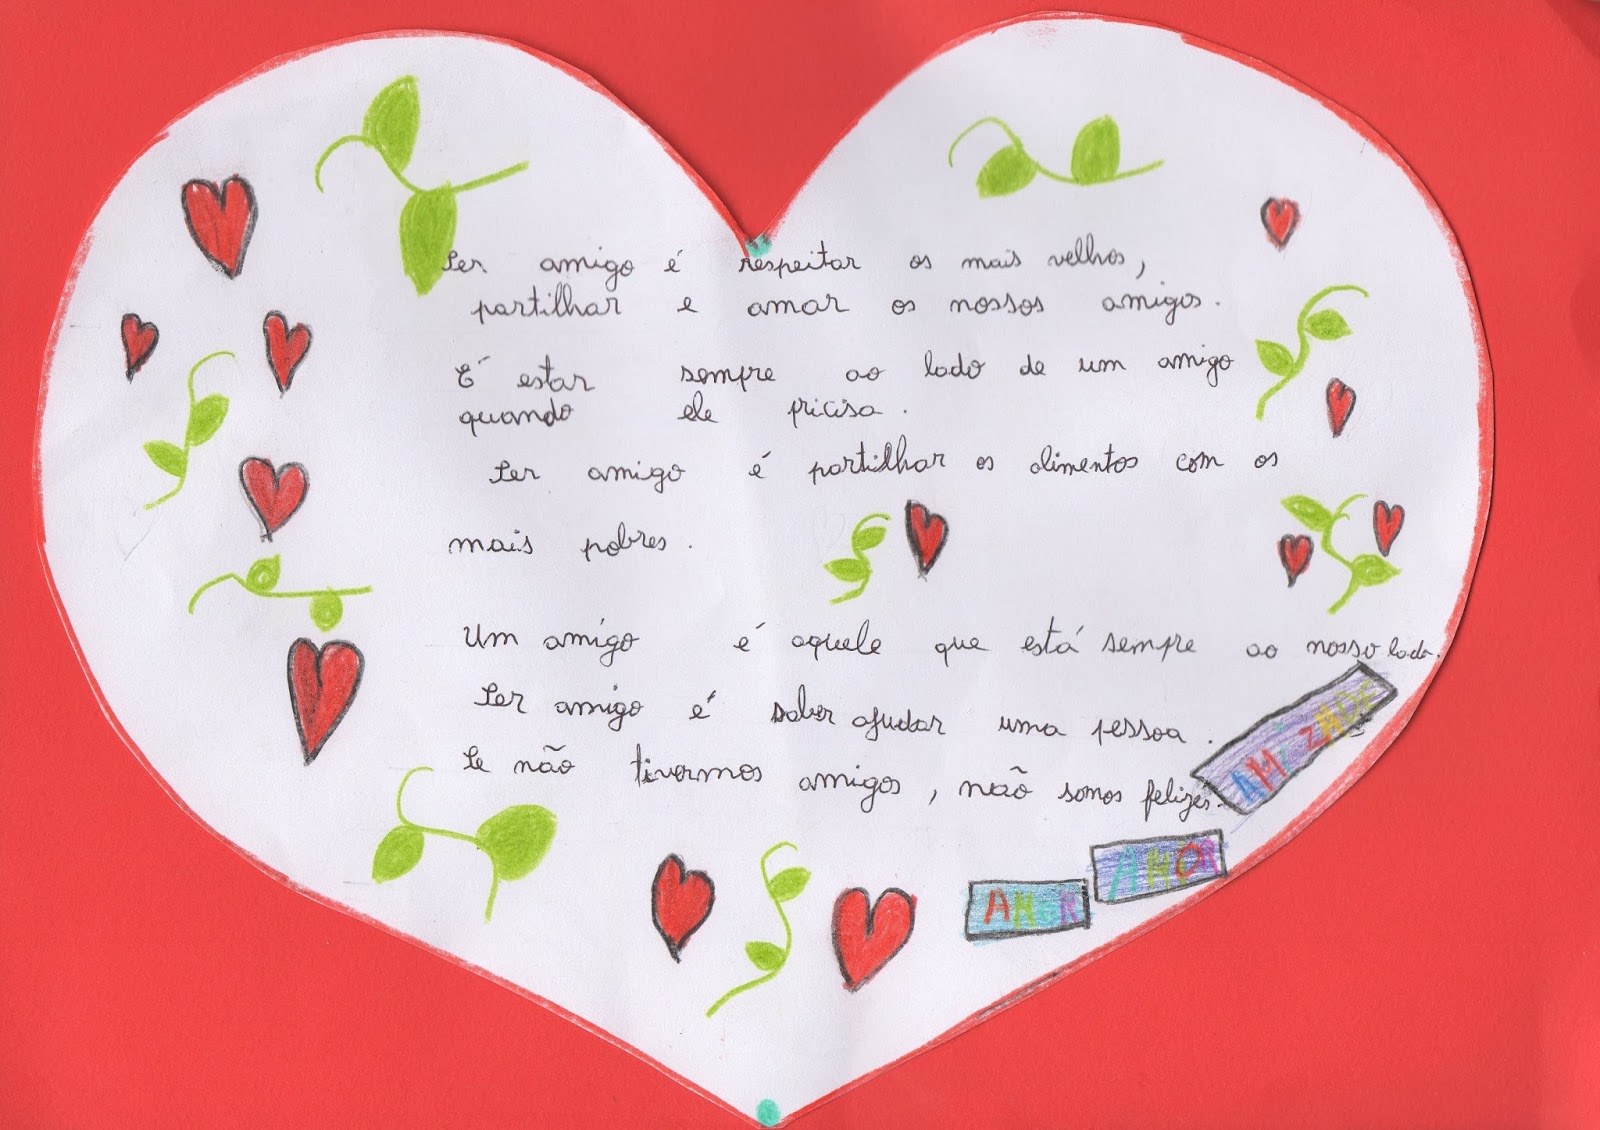 Ser amigo é respeitar os mais velhos,
partilhar e amar os nossos amigos.
É estar sempre ao lado de um amigo
quando ele pricisa.
Ser amigo é partilhar os alimentos com os
mais pobres.
Um amigo é aquele que está sempre ao nosso lado.
Ser amigo é saber ajudar uma pessoa.
Se não tivermos amigos, não somos felizes.
AMIZADE
AMOR
AMOR